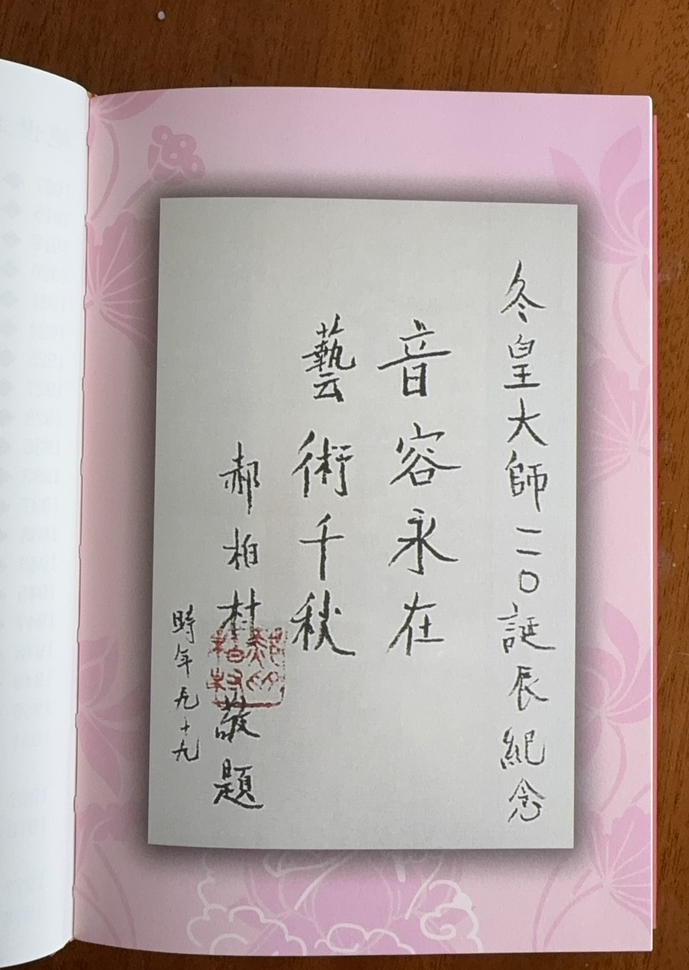 冬皇大師一一〇誕辰紀念
音容永在
藝術千秋
郝柏村敬題
時年九十九